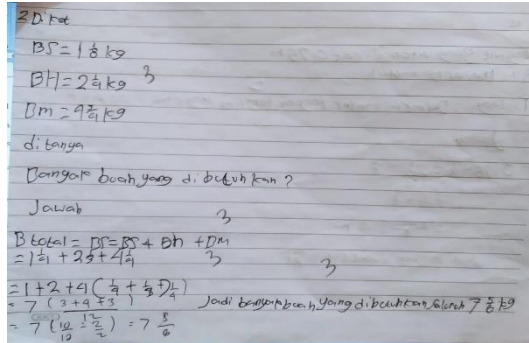 2 Diket
BS = 1 1/8 kg
BH = 2 1/4 kg 3
Bm = 4 2/4 kg
ditanya
Banyak buah yang dibutuhkan?
Jawab
3
B total = BS = BS + Bh + Bm
= 1 1/4 + 2 1/3 + 4 1/4 3
3
= 1 + 2 + 4 ( 1/4 + 1/3 + 1/4 )
= 7 ( 3 + 4 + 3 / 12 ) Jadi banyak buah yang dibutuhkan 7 5/6 kg
= 7 ( 10/12 : 2/2 ) = 7 5/6